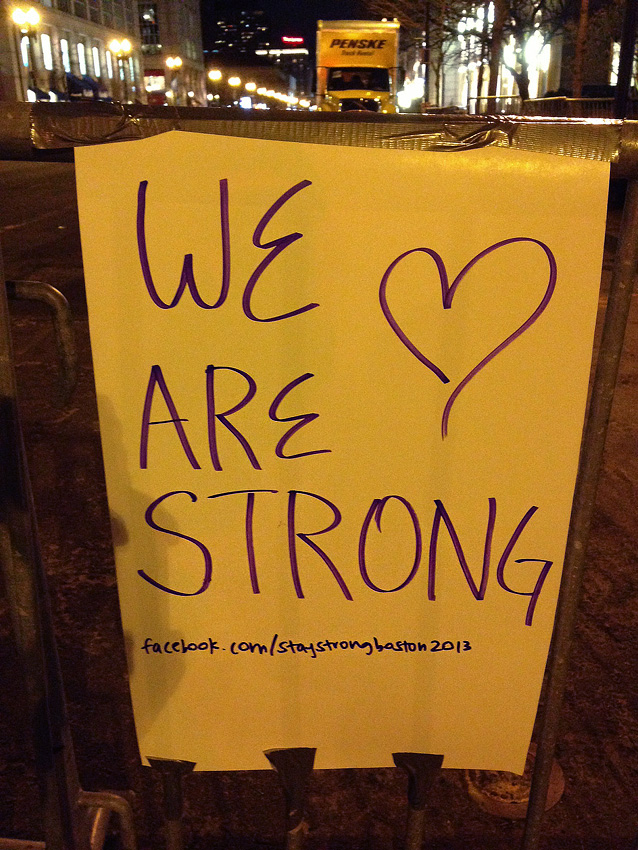 PENSKE
Truck Rental
WE
ARE
STRONG
facebook.com/staystrongboston2013